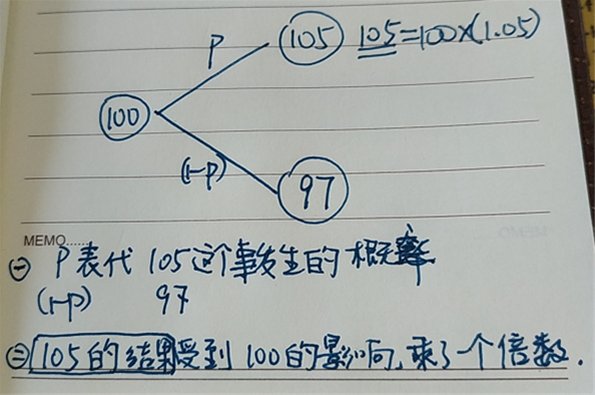 P 105 105=100×(1.05)
100
(1-P) 97
MEMO......
㊀ P表代 105这个事发生的概率
(1-P) 97
㊁ 105的结果受到100的影响,乘了一个倍数.